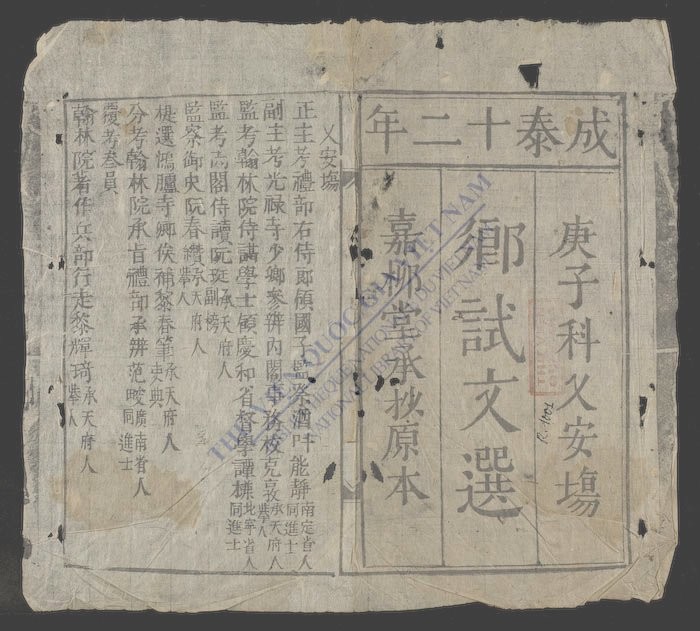 成泰十二年
庚子科乂安場
鄉試文選
嘉柳堂承抄原本
乂安場
正主考禮部右侍郎領國子監祭酒叶能靜南定省人同進士
副主考光禄寺少卿參辦內閣事務枚克敦承天府人舉人
監考翰林院侍講學士領慶和省督學譚 北寧省人同進士
監考高閣侍讀阮珽承天府人副榜
監察御史阮春 承天府人舉人
提選鴻臚寺卿侯補黎春筆承天府人吏典
分考翰林院承旨禮部承辦范 廣南省人同進士
覆考叁員
翰林院著作兵部行走黎輝琦承天府人舉人
THƯ VIỆN QUỐC GIA VIỆT NAM
BIBLIOTHEQUE NATIONALE DU VIETNAM
NATIONAL LIBRARY OF VIETNAM
R.1001